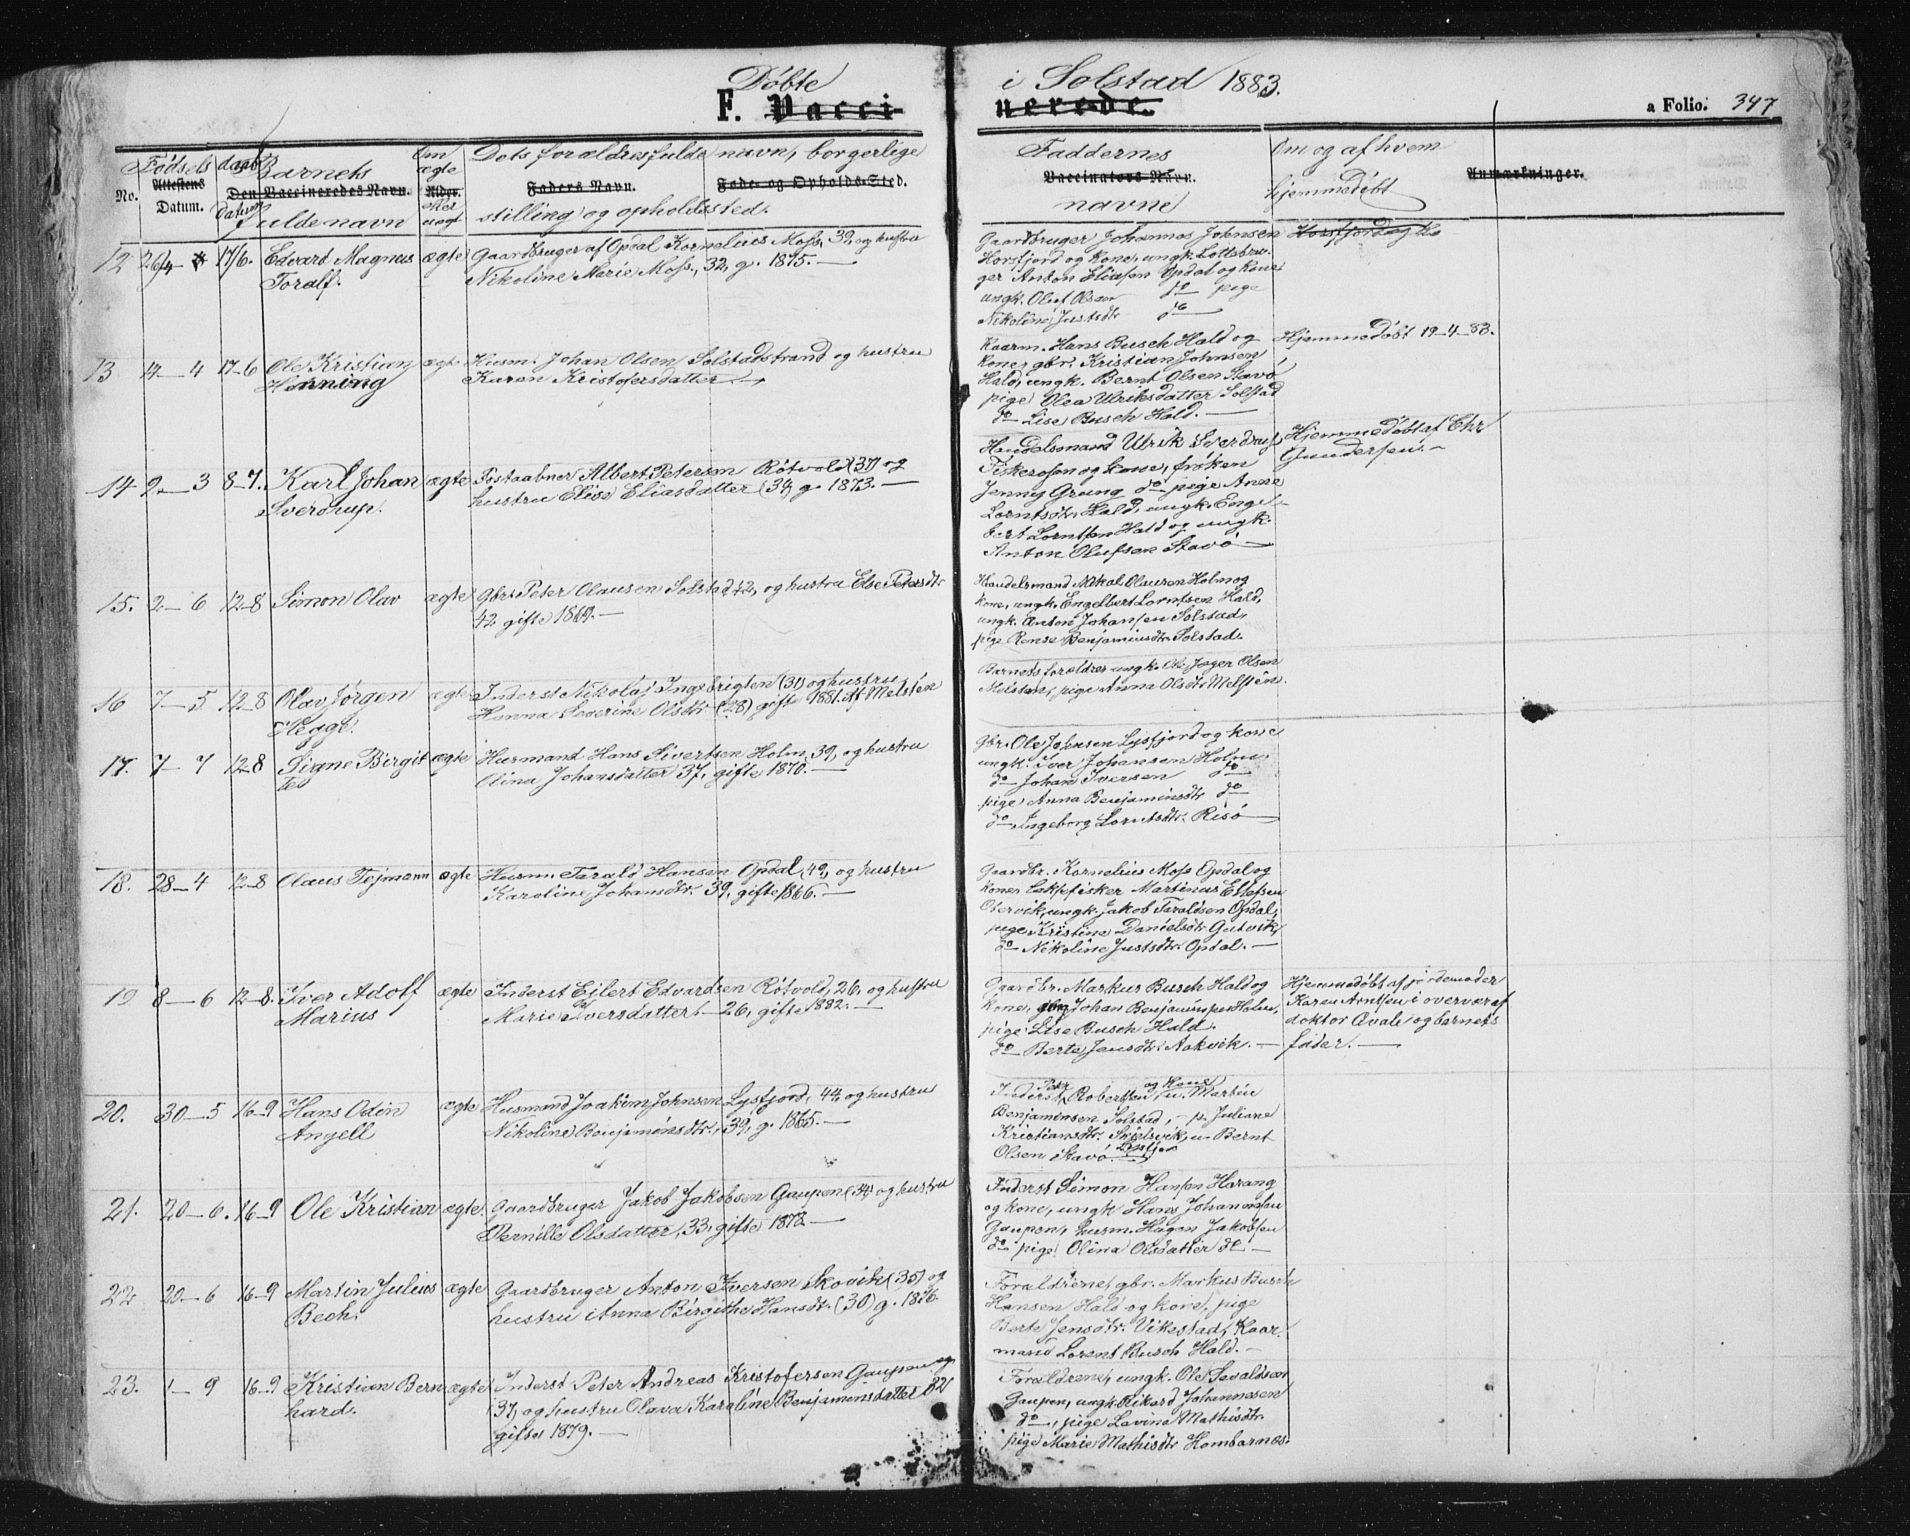 Döbte i Solstad 1883.
F. Vaccinerede. a Folio. 347
No. Fødsels Attestens Datum. daabs datum Barnets Den Vaccineredes Navn. fulde navn Om ægte Alder. eller uægt Dets forældres fulde navn, borgerlige Faders Navn. Føde- og Opholds-Sted. stilling og opholdssted. Faddernes Vaccinators Navn. navne Om og af hvem hjemmedøbt Anmærkninger.
12 26/4 17/6. Edvard Magnus ægte Gaardbruger af Opdal Kornelius Moss, 39, og hustru
Toralf. Nikoline Marie Moss, 32, g. 1875. —
Gaardbruger Johannes Johnsen
Horsfjord og kone, ungk. Lottsbru-
ger Anton Eliasen Opdal og kone
ungk. Oluf Olsen do pige
Nikoline Justsdtr do
13 14—4 17—6 Ole Kristian ægte Johan Olsen Solstadstrand og hustru
Henning Karen Kristofersdatter —
Kaarm. Hans Busch Hald og
kone, gbr. Kristian Johnsen
Hald, ungk. Bernt Olsen Stavø
pige Olea Ulriksdatter Solstad
do Lise Busch Hald. —
Hjemmedøbt 19—4—83.
14 9—3 8—7. Karl Johan ægte Postaabner Albert Petersen Røtvold (37) og
Sverdrup. hustru Elise Eliasdatter (34) g. 1873. —
Handelsmand Ulrik Sverdrup
Fiskerosen og kone, frøken
Jenny Grung do pige Anne
Lorntsdtr. Hald, ungk. Enge-
bert Lorntsen Hald og ungk.
Anton Olufsen Stavø —
Hjemmedøbt af Chr.
Gundersen. —
15. 2—6 12—8 Simon Olav ægte Gbr. Peter Olausen Solstad 42, og hustru Else Petersdtr
42 gifte 1869. —
Handelsmand Nikol. Olausen Holm og
kone, ungk. Engelbert Lorntsen Hald,
ungk. Anton Johansen Solstad,
pige Rense Benjaminsdtr. Solstad.
16 7—5 12—8 Olav Jørgen ægte Inderst Nikolaj Ingebrigten (31) og hustru
Hegge. Hanna Severine Olsdtr. (28) gifte 1881. Af Melsten
Barnets forældrer ungk. Ole Jæger Olsen
Meisten, pige Anna Olsdtr Melsten.
17. 7—7 12—8 Signe Birgit ægte Husmand Hans Sivertsen Holm, 39, og hustru
te Olina Johansdatter 37, gifte 1870. —
Gbr. Ole Johnsen Lysfjord og kone
ungk. Iver Johansen Holm,
do Johan Iversen do
pige Anna Benjaminsdtr do
do Ingeborg Lorntsdtr. Risø
18. 28—4 12—8 Olaus Tejmann ægte Husm. Tarald Hansen Opdal, 49, og hustru
Karoline Johansdtr. 39, gifte 1866. —
Gaardbr. Kornelius Moss Opdal og
kone Martinus Ellefsen
Otervik, ungk. Jakob Taraldsen Opdal,
pige Kristine Danielsdtr. Gutvik,
do Nikoline Justsdtr. Opdal. —
19 8—6 12—8. Iver Adolf ægte Inderst Eilert Edvardsen Røtvold, 26, og hustru
Marius Marie Iversdatter — 26, gifte 1882. —
Gaardbr. Markus Busch Hald og
kone, Johan Benjaminsen Holm,
pige Lise Busch Hald.
do Berte Jensdtr. Aakvik. —
Hjemmedøbt af jordemoder
Karen Arntsen i overvær af
doktor Qvale og barnets
fader. —
20. 30—5 16—9 Hans Odin ægte Husmand Joakim Johnsen Lysfjord, 44, og hustru
Angell Nikoline Benjaminsdtr., 39, g. 1865. —
Inderst Peter Robertsen og kone u. Martin
Benjaminsen Solstad, — p. Juliane
Kristiansdtr. Skjelsvik, u. Bernt
Olsen Stavø.
21. 20—6. 16—9 Ole Kristian ægte. Gaardbruger Jakob Jakobsen Gaupen (34) og hustru
Pernille Olsdatter, 33, gifte 1872 —
Inderst Simon Hansen Harang
og kone, ungk Hans Johannesen
Gaupen, husm. Hagen Jakobsen
do pige Olina Olsdatter do —
22 20—6 16—9 Martin Julius ægte Gaardbruger Anton Iversen Skovik (35) og
Bech. hustru Anna Birgithe Hansdt. (30) g. 1876.
Forældrene, gbr. Markus Busch
Hansen Hald og kone, pige
Berte Jensdtr. Vikestad, Kaar-
mand Lorent Busch Hald. —
23. 1—9 16—9 Kristian Bern ægte Inderst Peter Andreas Kristofersen Gaupen og
hard. (37, og hustru Olava Karoline Benjaminsdatter (32)
gifte 1879. —
Forældrene, ungk. Ole Sevaldsen
Gaupen, ungk Rikard Johannesen
do, pige Lavina Mathisdtr.
pige Marie Mathisdtr Hombornes.